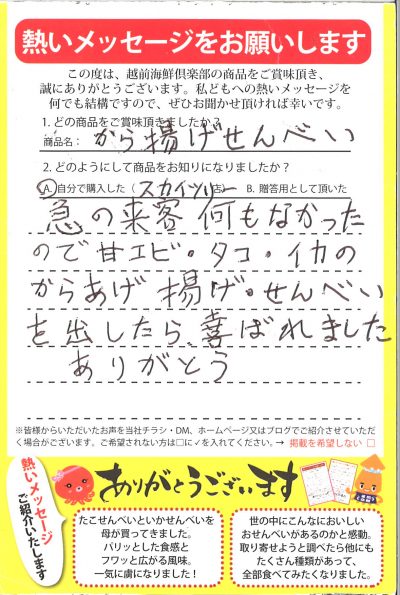 熱いメッセージをお願いします
この度は、越前海鮮倶楽部の商品をご賞味頂き、
誠にありがとうございます。私どもへの熱いメッセージを
何でも結構ですので、ぜひお聞かせ頂ければ幸いです。
1. どの商品をご賞味頂きましたか?
商品名: から揚げせんべい
2. どのようにして商品をお知りになりましたか?
A. 自分で購入した(スカイツリー店) B. 贈答用として頂いた
急の来客 何もなかった
ので甘エビ・タコ・イカの
からあげ 揚げ・せんべい
を出したら、喜ばれました
ありがとう
※皆様からいただいたお声を当社チラシ・DM、ホームページ又はブログでご紹介させていただ
く場合がございます。ご希望されない方は□に✓を入れてください。→ 掲載を希望しない □
熱いメッセージ
ご紹介いたします
ありがとうございます
たこせんべいといかせんべいを
母が買ってきました。
パリッとした食感と
フワッと広がる風味。
一気に虜になりました!
世の中にこんなにおいしい
おせんべいがあるのかと感動。
取り寄せようと調べたら他にも
たくさん種類があって、
全部食べてみたくなりました。